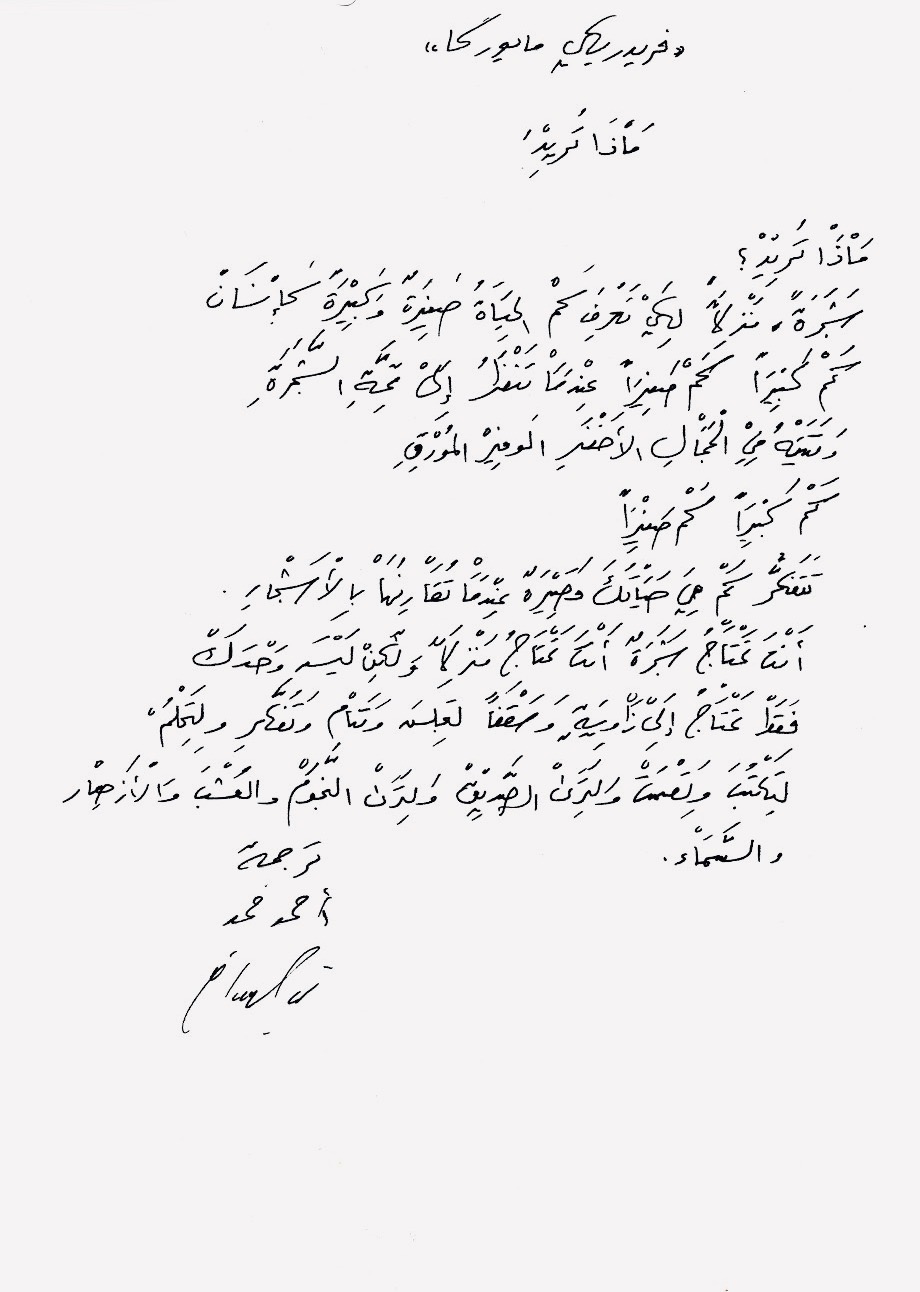 «فريدريكي مايوركا»
مَاْذَا تُرِيْدُ
مَاْذَاْ تُرِيْدُ؟
شَجَرَةً، مَنْزِلاً لِكَيْ تَعْرِفَ كَمْ الحِيَاةُ صَغِيرَةٌ وَكَبِيْرَةٌ كَإِنْسَانْ
كَمْ كَبِيْراً كَمْ صَغِيْراً عِنْدَمَاْ تَنْظُرُ إِلَىْ قِمَّةِ الشَّجَرَةِ
وَتَتِيْهُ فِيْ الْجَمَالِ الأَخْضَرِ الوَفِيْرْ المُوْرِقِ
كَمْ كَبِيْراً كَمْ صَغِيْراً
تَتَفَكَّرُ كَمْ هِيَ حَيَاْتُكَ قَصِيْرَةٌ عِنْدَمَاْ تُقَاْرِنُهَاْ بِالْأَشْجَارِ.
أَنْتَ تَحْتَاْجُ شَجَرَةً أَنْتَ تَحْتَاْجُ مَنْزِلاً وَلَكِنْ لَيْسَ وَحْدَكَ
فَقَطْ تَحْتَاْجُ إِلَىْ زَاْوِيَةٍ وَسَقْفَاً لتجلسَ وَتَنَاْمْ وَتَفَكَّرِ ولِتَحْلُمْ،
لِتَكْتُبَ وَتَصْمُتَ وَلِتَرَىْ الصَّدِيْقْ وَلِتَرَىْ النُّجُوْمْ والعُشْبَ وَالْأَزهْار
والسَّمَاْء.
تَرجمة
أحمد محمد